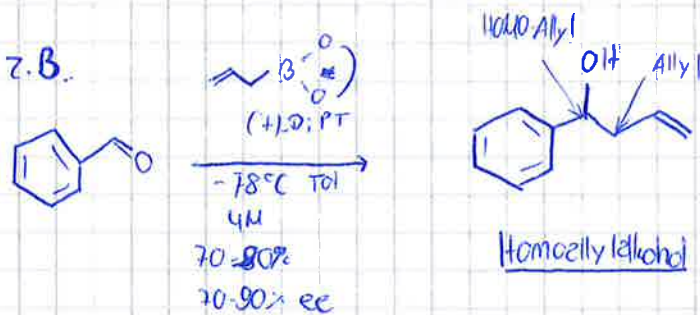 z.B.
B
O
O
*
(+)-D; PT
-78°C Tol
4M
70-80%
70-90% ee
O
HOMO-Allyl
OH
Allyl
Homoallylalkohol